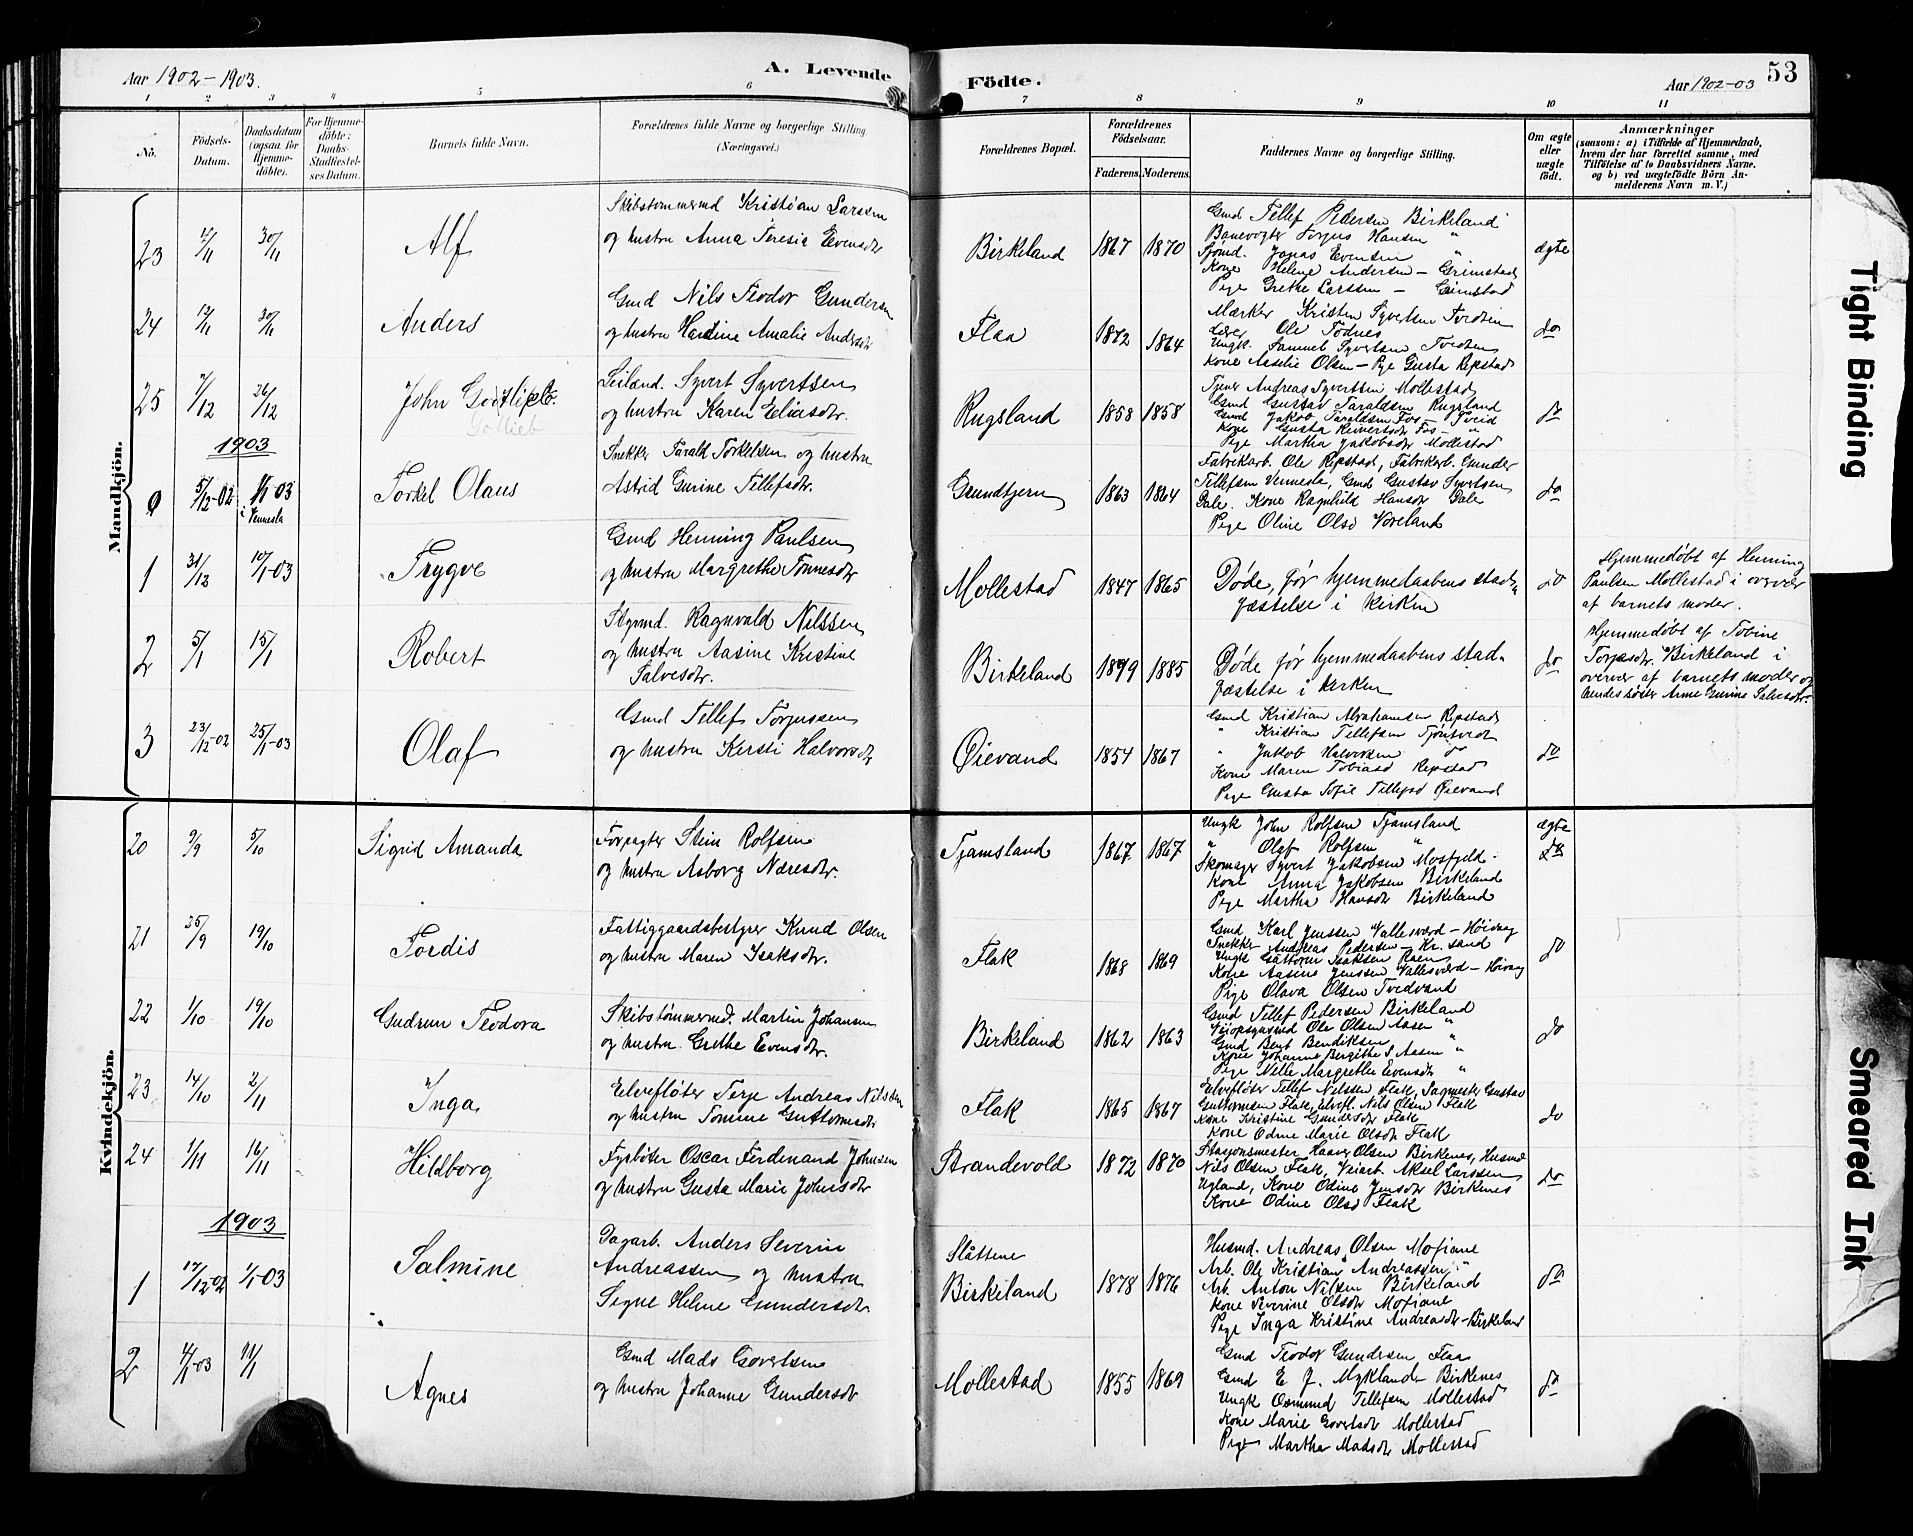 Aar 1902 - 1903.
A. Levende
Födte.
Aar 1902-03
53
1 2 3 4 5 6 7 8 9 10 11
No.
Födsels-Datum.
Daabsdatum (ogsaa for Hjemmedöbte).
For Hjemmedöbte: Daabs-Stadfæstelses Datum.
Barnets fulde Navn.
Forældrenes fulde Navne og borgerlige Stilling.
(Næringsvei.)
Forældrenes Bopæl.
Forældrenes Födselsaar.
Faderens. Moderens.
Faddernes Navne og borgerlige Stilling.
Om ægte eller uægte födt.
Anmærkninger
(saasom: a) i Tilfælde af Hjemmedaab, hvem der har forrettet samme, med Tilföielse af to Daabsvidners Navne. og b) ved uægtefödte Börn Anmelderens Navn m. V.)
Mandkjön.
23
30/11
Alf
Skibstømmermd Kristian Larssen
og hustru Anna Teresia Evensdtr
Birkeland
1867 1870
Gmd Tellef Pedersen Birkeland
Banevogter Torjus Hansen "
Sjømd. Jonas Evensen "
Kone Helene Andersen - Grimstad
Pige Grethe Larssen - Grimstad
ægte
24
12/11
30/11
Anders
Gmd Nils Teodor Gundersen
og hustru Hardine Amalie Andersdtr
Flaa
1872 1864
Mærker Kristen Syvertsen Tveiten
Ole Fodnes
Ungk. Samuel Syvertsen Tveiten
Kone Aaselie Olsen - Pige Gusta Repstad
do
25
7/12
26/12
John Gottlieb
Gotlieb
Leiland. Syvert Syvertsen
og hustru Karen Eliasdtr.
Rugsland
1858 1858
Tjener Andreas Syvertsen Mollestad
Gmd Gustav Taraldsen Rugsland
Gmd Jakob Taraldsen Fos - Tveid
Kone Gusta Reinertsdtr Fos - "
Pige Martha Jakobsdtr Mollestad
do
1903
0
5/12-02
1/1 03
i Vennesla
Torkel Olaus
Snekker Tarald Torkelsen og hustru
Astrid Gurine Tellefsdtr.
Grundtjern
1863 1864
Fabrikarb. Ole Repstad, Fabrikarb. Gunder
Tellefsen Vennesla, Gmd Gustav Syvertsen
Dale. Kone Ragnhild Hansdtr Dale
Pige Oline Olsd Voreland
do
1
31/12
10/1-03
Trygve
Gmd Henning Paulsen
og hustru Margrethe Tønnesdtr
Mollestad
1847 1865
Døde, før hjemmedaabens stad-
fæstelse i kirken
do
Hjemmedøbt af Henning
Paulsen Mollestad i overvær
af barnets moder.
2
5/1
15/1
Robert
Styrmd. Ragnvald Nilssen
og hustru Aasine Kristine
Salvesdtr.
Birkeland
1879 1885
Døde før hjemmedaabens stad-
fæstelse i kirken
do
Hjemmedøbt af Tobine
Torjesdtr. Birkeland i
overvær af barnets moder og
hendes søster Anne Gurine Salvesdtr.
3
23/12-02
25/1-03
Olaf
Gmd Tellef Torjussen
og hustru Kersti Halvorsdtr
Øievand
1854 1867
Gmd Kristian Abrahamsen Repstad
" Kristian Tellefsen Tjomtvedt
" Jakob Halvorsen do
Kone Maren Tobiasd Repstad
Pige Gusta Sofie Tellefsd Øievand
do
Kvindekjön.
20
9/9
5/10
Sigrid Amanda
Forpagter Stein Rolfsen
og hustru Asborg Næresdtr.
Tjamsland
1867 1867
Ungk John Rolfsen Tjamsland
" Olaf Rolfsen "
Skomager Syvert Jakobsen Mosfjeld
Kone Anna Jakobsen Birkeland
Pige Martha Hansdtr Birkeland
ægte
do
21
25/9
19/10
Tordis
Fattiggaardsbestyrer Knud Olsen
og hustru Maren Isaksdtr.
Flak
1868 1869
Gmd Karl Jenssen Vallesværd - Høivåg
Snekker Andreas Pedersen - Kr. sand
Ungk Guttorm Isaksen Roen
Kone Aasine Jenssen Vallesværd - Høivåg
Pige Olava Olsen Tvedvand
do
22
1/10
19/10
Gudrun Teodora
Skibstømmermd. Martin Johansen
og hustru Grethe Evensdtr.
Birkeland
1862 1863
Gmd Tellef Pedersen Birkeland
Veiopsynsmd Ole Olsen Aasen "
Gmd Bent Bendiksen
Kone Johanne Bergitte S. Aasen "
Pige Nelle Margrethe Evensdtr "
do
23
14/10
2/11
Inga
Elvefløter Terje Andreas Nilssen
og hustru Tomine Guttormsdtr
Flak
1865 1867
Elvefløter Tellef Nilssen Flak, Sagmester Gustav
Guttormsen Flak, Elvefl. Nils Olsen Flak
Kone Kristine Gundersdtr Flak
Kone Odine Marie Olsdtr Flak
do
24
1/11
16/11
Hildborg
Fyrbøter Oscar Ferdinand Johnsen
og hustru Gusta Marie Johnsdtr
Strandevold
1872 1870
Stasjonsmester Haaver Olsen Birkenes, Husmd
Nils Olsen Flak, Veiarb. Aksel Larssen
Ugland, Kone Odine Jensdtr Birkenes
Kone Odine Olsd Flak
do
1903
1
17/12-02
1/1-03
Salmine
Dagarb. Anders Severin
Andreassen og hustru
Signe Helene Gundersdtr
Slåttene
Birkeland
1878 1876
Husmd. Andreas Olsen Mofiane
Arb. Ole Kristian Andreassen "
Arb. Anton Nilsen Birkeland
Kone Severine Olsdtr Mofiane
Pige Inga Kristine Andreasdtr - Birkeland
do
2
4/1-03
11/1
Agnes
Gmd Mads Govertsen
og hustru Johanne Gundersdtr
Mollestad
1855 1869
Gmd Teodor Gundersen Flaa
Gmd E J. Mykland Birkenes
Ungk Osmund Tellefsen Mollestad
Kone Marie Govertsdtr Mollestad
Pige Martha Madsdtr Mollestad
do
Tight Binding
Smeared Ink